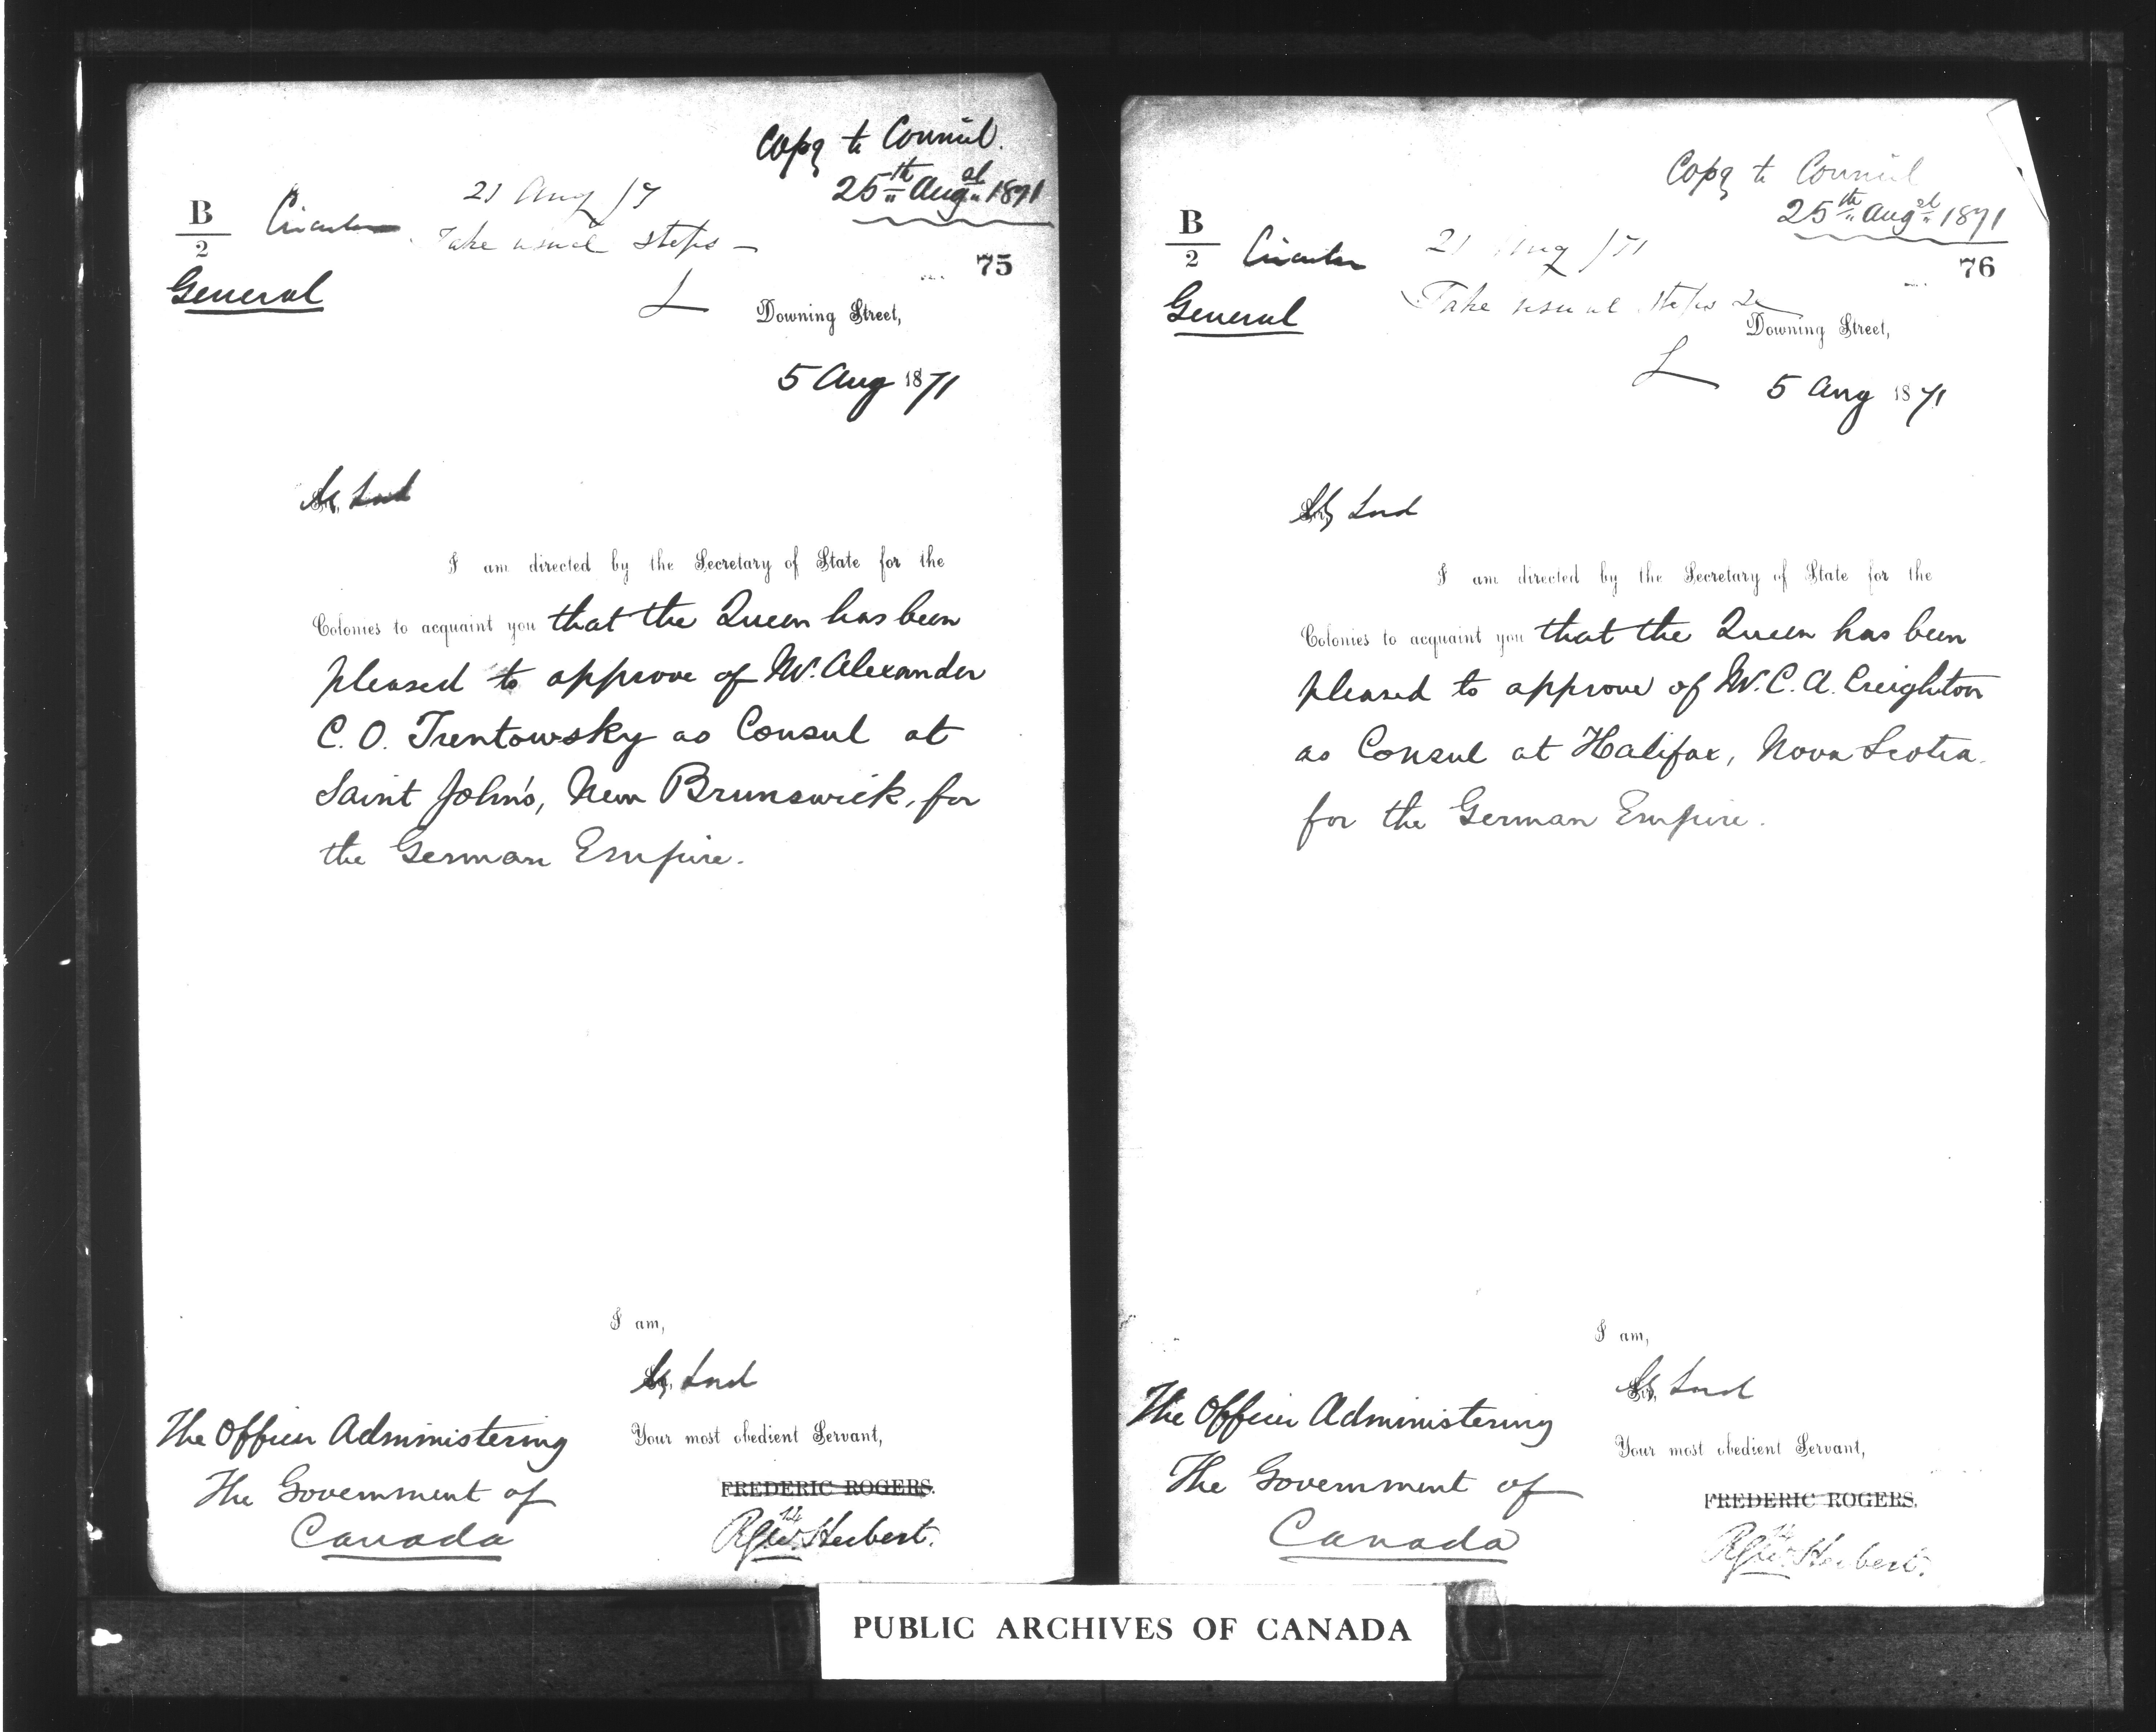 Copy to Council.
25th Augst 1871
B
2
Circular
21 Aug /7
Take usual steps —
75
General
L
Downing Street,
5 Aug 1871
My Lord
I am directed by the Secretary of State for the
Colonies to acquaint you that the Queen has been
pleased to approve of Mr. Alexander
C. O. Trentowsky as Consul at
Saint John's, New Brunswick, for
the German Empire.
I am,
My Lord
Your most obedient Servant,
FREDERIC ROGERS.
Herbert.
The Officer Administering
The Government of
Canada
Copy to Council
25th Augst 1871
B
2
Circular
21 Aug /71
Take usual steps
76
General
L
Downing Street,
5 Aug 1871
My Lord
I am directed by the Secretary of State for the
Colonies to acquaint you that the Queen has been
pleased to approve of Mr. C. A. Creighton
as Consul at Halifax, Nova Scotia.
for the German Empire.
I am,
My Lord
Your most obedient Servant,
FREDERIC ROGERS.
Herbert.
The Officer Administering
The Government of
Canada
PUBLIC ARCHIVES OF CANADA